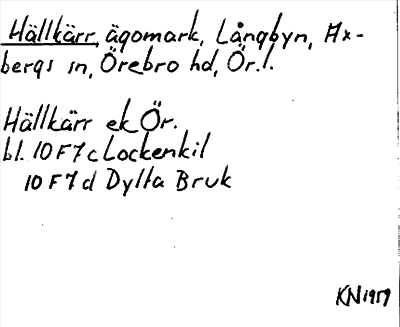 Hällkärr, ägomark, Långbyn, Ax-
bergs sn, Örebro hd, Ör.l.
Hällkärr ek Ör.
bl. 10 F7c Lockenkil
10 F7d Dylta Bruk
KN1959